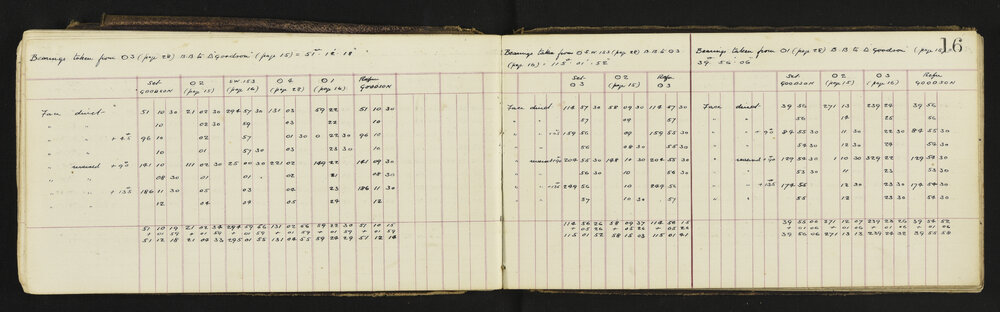 Bearings taken from O3 (page 28) B.B to △ Goodson (page 15) = 51° 12' 18"
Set GOODSON O2 (page 15) S.W. 153 (page 16) O4 (page 28) O1 (page 16) Refer GOODSON
Face direct 51 10 30 21 02 30 294 57 30 131 03 59 22 51 10 30
" " 10 02 30 59 03 22 10
" " +45° 96 10 02 57 01 30 0 22 30 96 10
" " 10 01 57 30 03 23 30 10
" reversed +90° 141 10 111 02 30 25 00 30 221 02 149 22 141 09 30
" " 08 30 01 01 02 21 08 30
" " +135 186 11 30 05 03 04 23 186 11 30
" " 12 04 04 05 24 12
51 10 19 21 02 34 294 59 56 131 02 56 59 22 30 51 10 15
+ 01 59 + 01 59 + 01 59 + 01 59 + 01 59 + 01 59
51 12 18 21 04 33 295 01 55 131 04 55 59 24 29 51 12 14
Bearings taken from O S.W. 153 (page 28) B.B. to O3
(page 16) = 115° 01' 52"
Set O3 O2 (page 15) Refer O3
Face direct 114 57 30 58 09 30 114 57 30
" " 57 09 57
" " +45° 159 56 09 159 55 30
" " 56 08 30 55 30
" reversed +90° 204 55 30 148 10 30 204 55 30
" " 56 30 10 56 30
" " +135 249 56 10 249 56
" " 57 10 30 57
114 56 26 58 09 37 114 56 15
+ 05 26 + 05 26 + 05 26
115 01 52 58 15 03 115 01 41
16
Bearings taken from O1 (page 28) B.B to △ Goodson (page 15)
39° 56' 06"
Set GOODSON O2 (page 15) O3 (page 16) Refer GOODSON
Face direct 39 56 271 13 239 24 39 56
" " 56 14 25 56
" " +45° 84 55 30 11 30 22 30 84 55 30
" " 54 30 12 30 24 54 30
" reversed +90 129 54 30 1 10 30 329 22 129 54 30
" " 53 30 11 23 53 30
" " +135 174 55 12 30 23 30 174 54 30
" " 55 12 23 30 54 30
39 55 00 271 12 07 239 23 26 39 54 52
+ 01 06 + 01 06 + 01 06 + 01 06
39 56 06 271 13 13 239 24 32 39 55 58